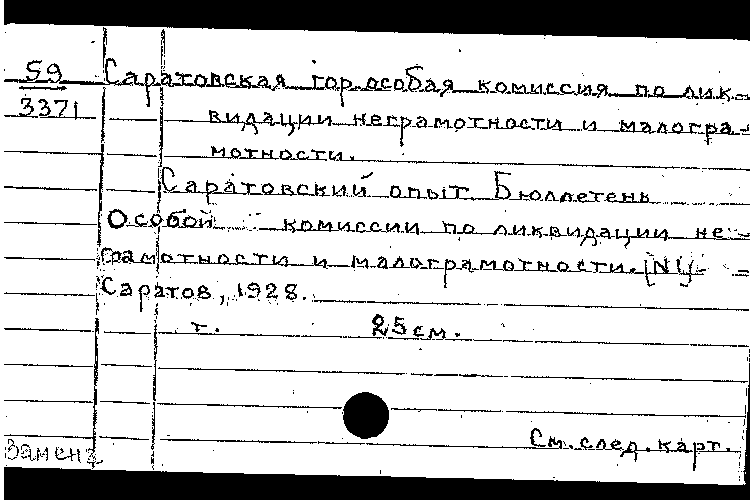 59
3371
Саратовская гор. особая комиссия по лик-
видации неграмотности и малогра-
мотности.
Саратовский опыт. Бюллетень
Особой комиссии по ликвидации не-
грамотности и малограмотности. [N1]-
Саратов, 1928.
т. 25 см.
См. след. карт.
Замена